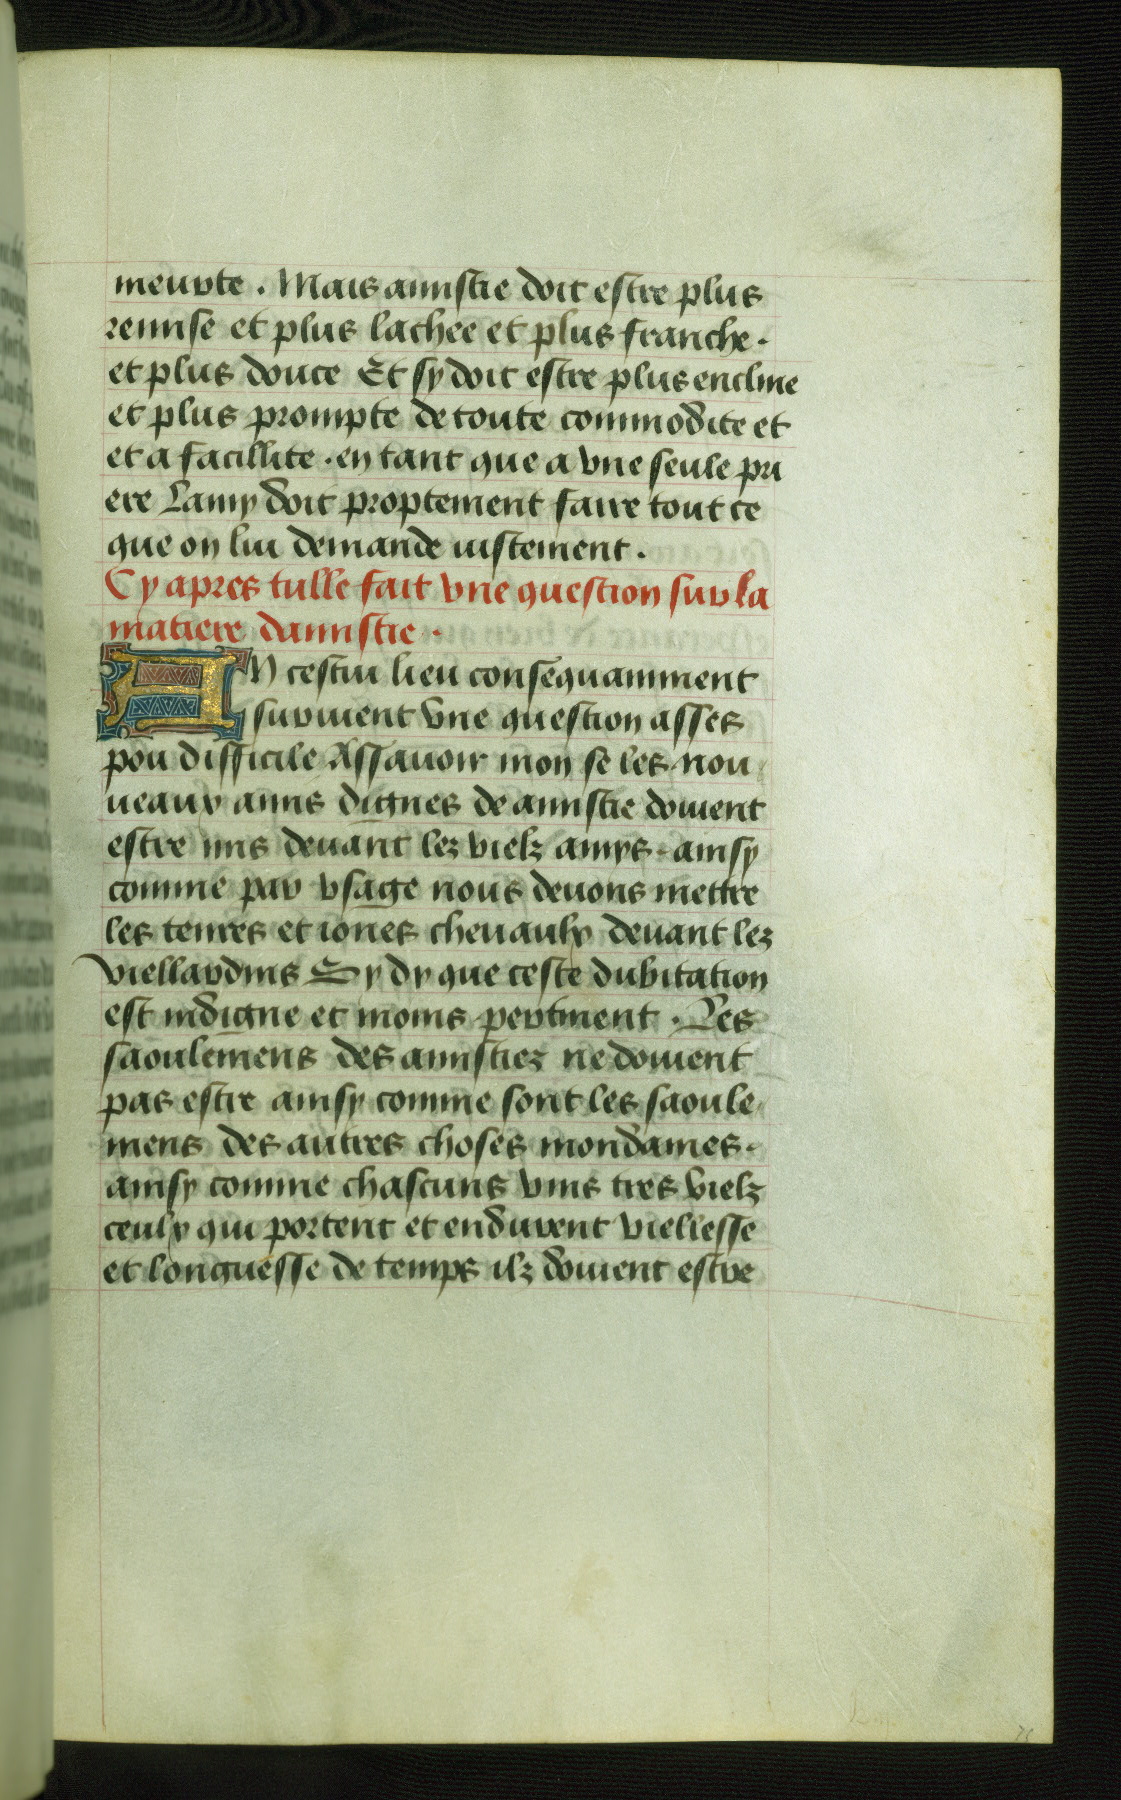 meurte . Mais amistie doit estre plus
remise et plus lachee et plus franche .
et plus douce Et sy doit estre plus encline
et plus prompte de toute commodite et
et a facillite . en tant que a vne seule pri
ere Lamy doit proptement faire tout ce
que on lui demande iustement .
Cy apres tulle fait vne question sur la
matiere damistie .
En cestui lieu consequamment
suruient vne question asses
pou difficile Assauoir mon se les nou
ueaux amis dignes de amistie doiuent
estre mis deuant lez vielz amys . ainsy
comme par vsage nous deuons mettre
les tenres et iones cheuaulx deuant lez
viellardins Sy dy que ceste dubitation
est indigne et moins pertinent . Les
saoulemens des amistiez ne doiuent
pas estre ainsy comme sont les saoule
mens des autres choses mondaines .
ainsy comme chascuns vins tres vielz
ceulx qui portent et endurent viellesse
et longuesse de temps ilz doiuent estre